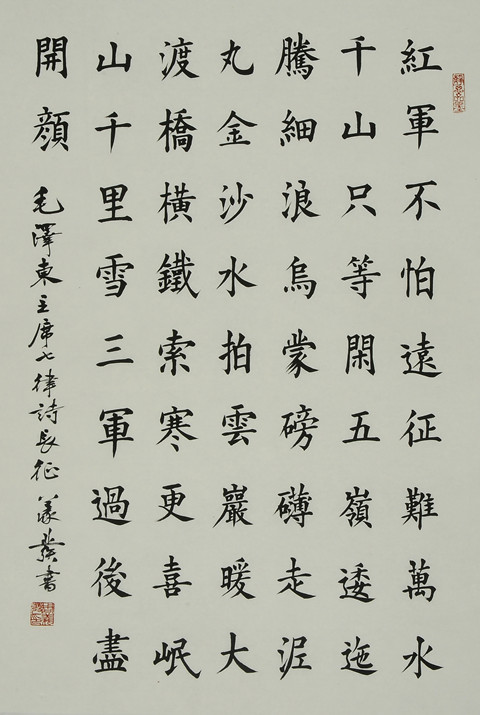 紅軍不怕遠征難萬水
千山只等閑五嶺逶迤
騰細浪烏蒙磅礴走泥
丸金沙水拍雲巖暖大
渡橋橫鐵索寒更喜岷
山千里雪三軍過後盡
開顏
毛澤東主席七律詩長征 書